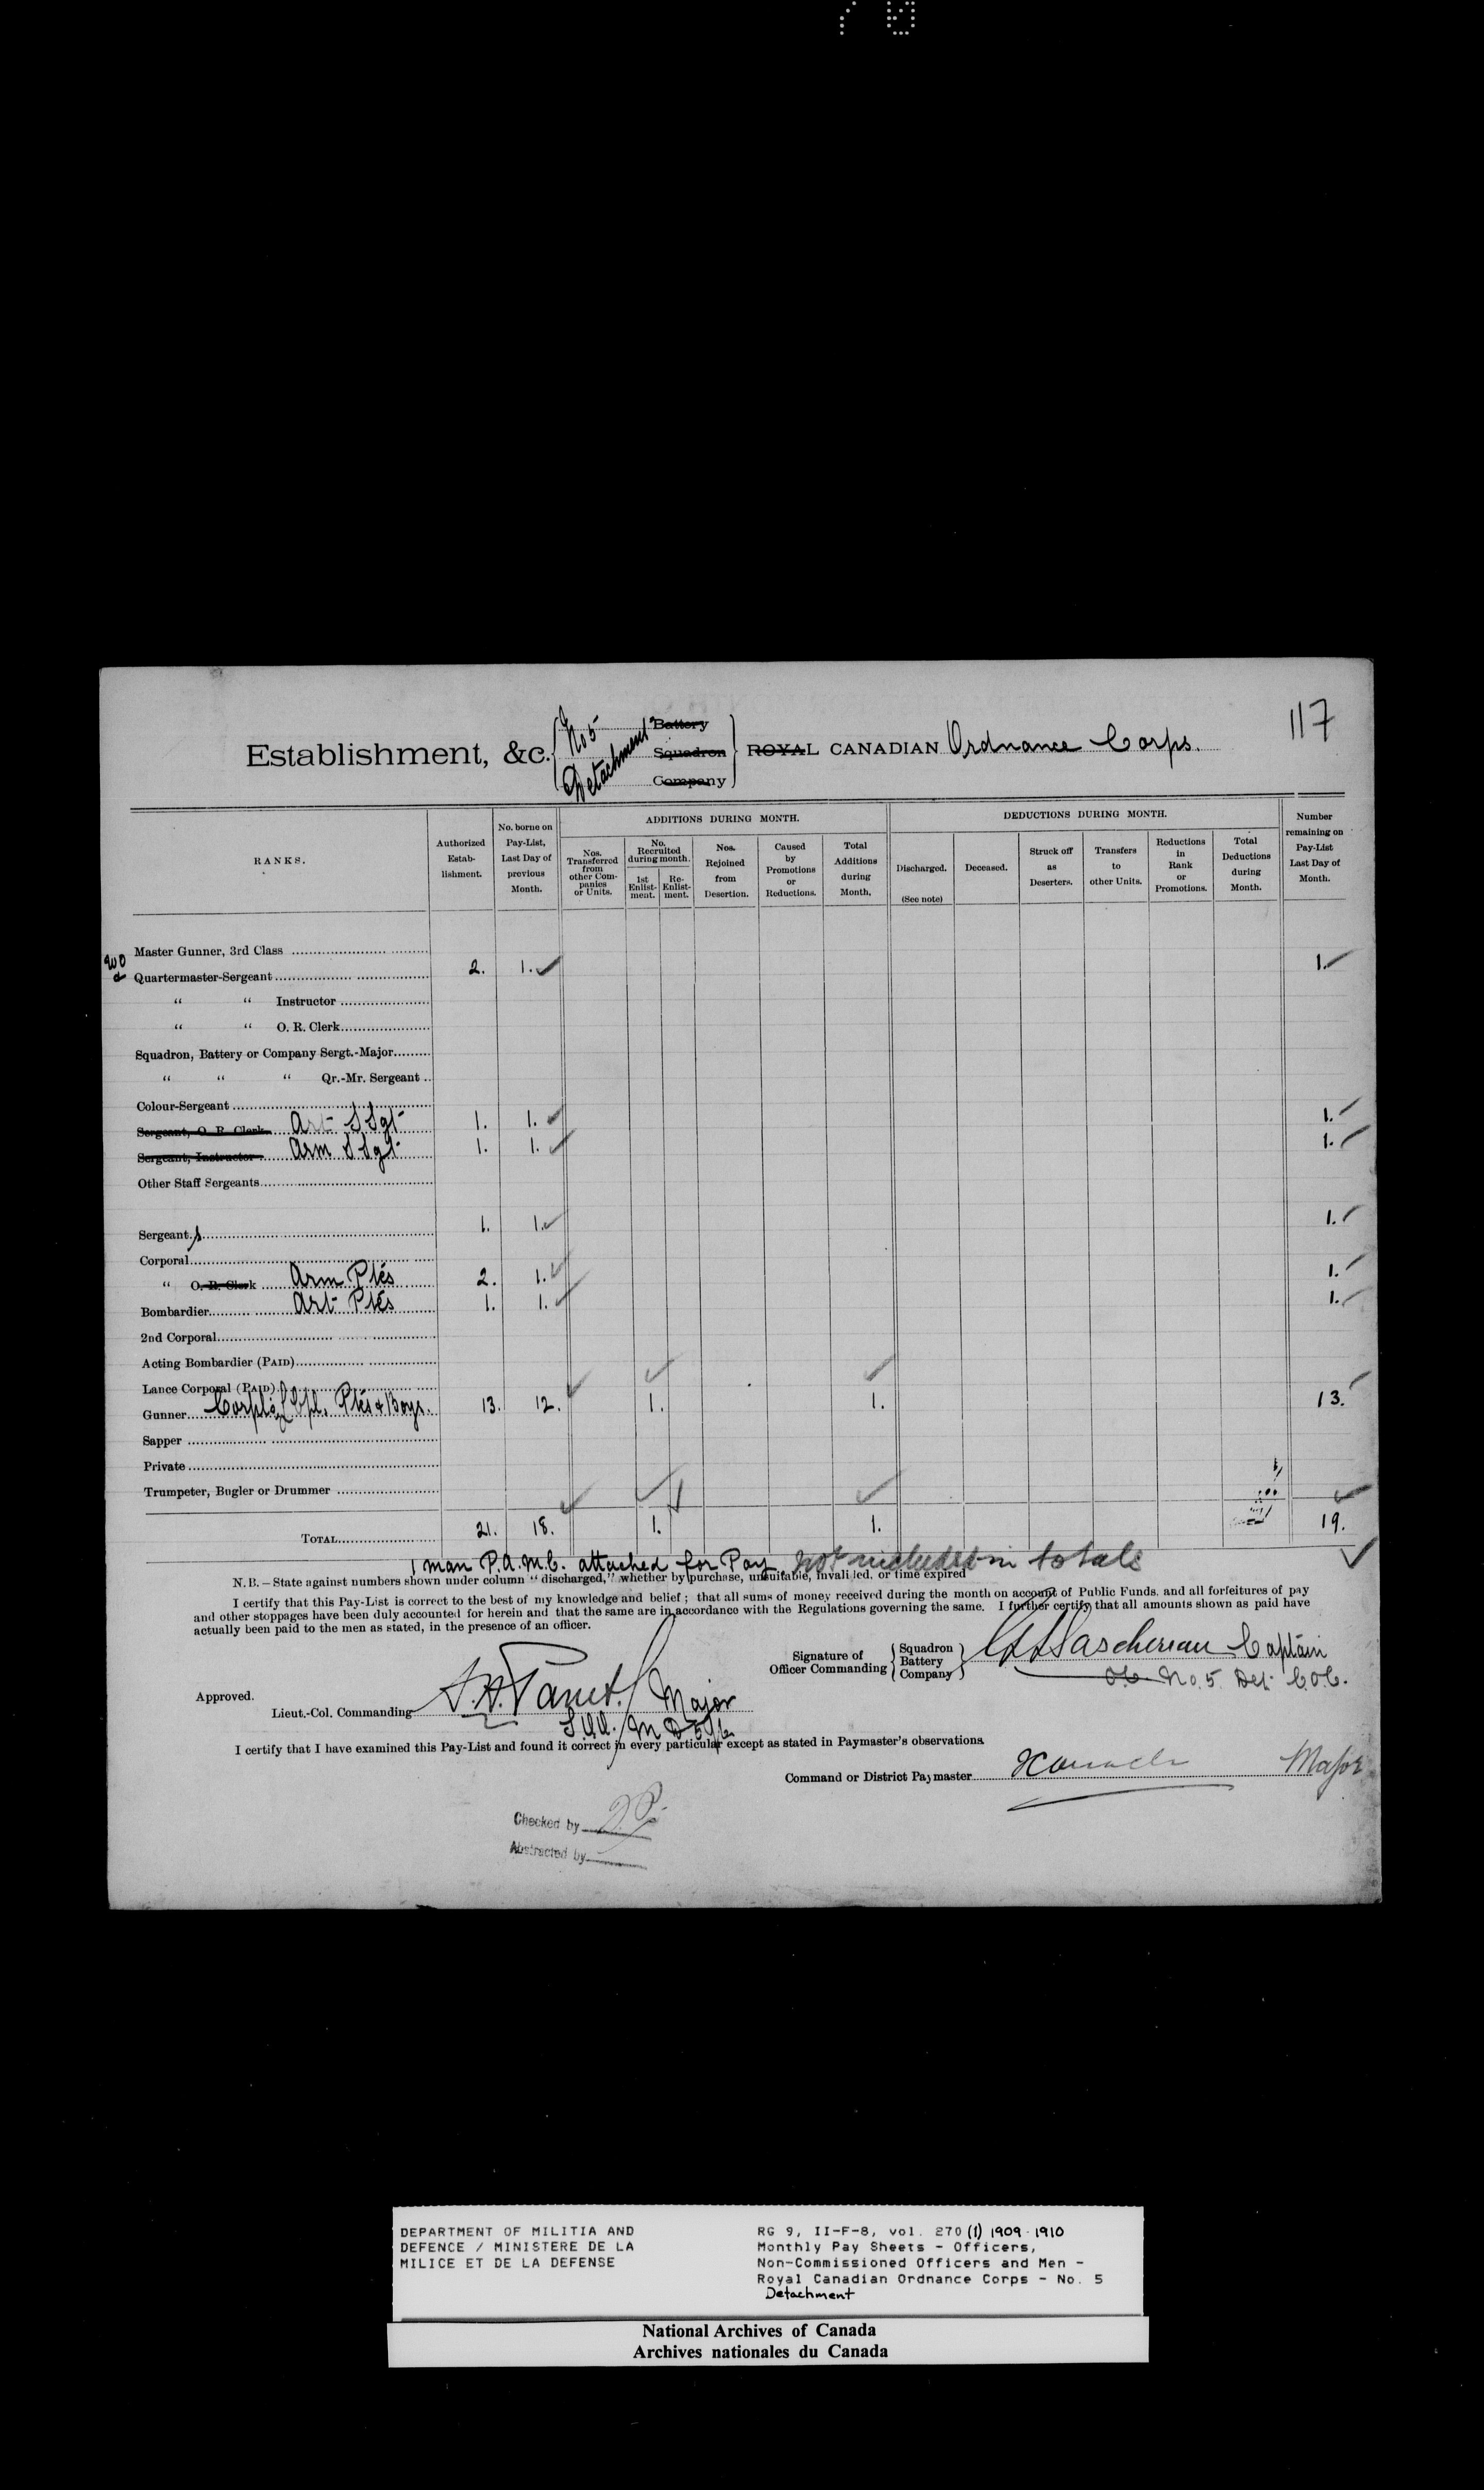 117
Establishment, &c. No 5 Detachment Battery Squadron Company ROYAL CANADIAN Ordnance Corps.
RANKS.
Authorized Estab-lishment.
No. borne on Pay-List, Last Day of previous Month.
ADDITIONS DURING MONTH.
Nos. Transferred from other Com-panies or Units.
No. Recruited during month.
1st Enlist-ment.
Re-Enlist-ment.
Nos. Rejoined from Desertion.
Caused by Promotions or Reductions.
Total Additions during Month.
DEDUCTIONS DURING MONTH.
Discharged. (See note)
Deceased.
Struck off as Deserters.
Transfers to other Units.
Reductions in Rank or Promotions.
Total Deductions during Month.
Number remaining on Pay-List Last Day of Month.
Master Gunner, 3rd Class
Quartermaster-Sergeant 2. 1. 1.
“ “ Instructor
“ “ O. R. Clerk
Squadron, Battery or Company Sergt.-Major
“ “ “ Qr.-Mr. Sergeant
Colour-Sergeant
Sergeant, O. R. Clerk Art SSgt 1. 1. 1.
Sergeant, Instructor Arm SSgt 1. 1. 1.
Other Staff Sergeants
Sergeant.s 1. 1. 1.
Corporal
“ O. R. Clerk Arm Ptes 2. 1. 1.
Bombardier Art Ptes 1. 1. 1.
2nd Corporal
Acting Bombardier (PAID)
Lance Corporal (PAID)
Gunner Corpls, Cpl, Ptes & Boys. 13. 12. 1. 1. 13.
Sapper
Private
Trumpeter, Bugler or Drummer
TOTAL 21. 18. 1. 1. 19.
1 man P.A.M.C. attached for Pay not included in totals
N.B.—State against numbers shown under column “discharged,” whether by purchase, unsuitable, invalided, or time expired
I certify that this Pay-List is correct to the best of my knowledge and belief; that all sums of money received during the month on account of Public Funds. and all forfeitures of pay
and other stoppages have been duly accounted for herein and that the same are in accordance with the Regulations governing the same. I further certify that all amounts shown as paid have
actually been paid to the men as stated, in the presence of an officer.
Signature of Officer Commanding Squadron Battery Company Captain
OC No. 5 Det. C.O.C.
Approved.
Lieut.-Col. Commanding Panet. Major
I certify that I have examined this Pay-List and found it correct in every particular except as stated in Paymaster's observations
Command or District Paymaster Major
Checked by
Abstracted by
DEPARTMENT OF MILITIA AND
DEFENCE / MINISTERE DE LA
MILICE ET DE LA DEFENSE
RG 9, II-F-8, vol. 270 (1) 1909-1910
Monthly Pay Sheets - Officers,
Non-Commissioned Officers and Men -
Royal Canadian Ordnance Corps - No. 5
Detachment
National Archives of Canada
Archives nationales du Canada